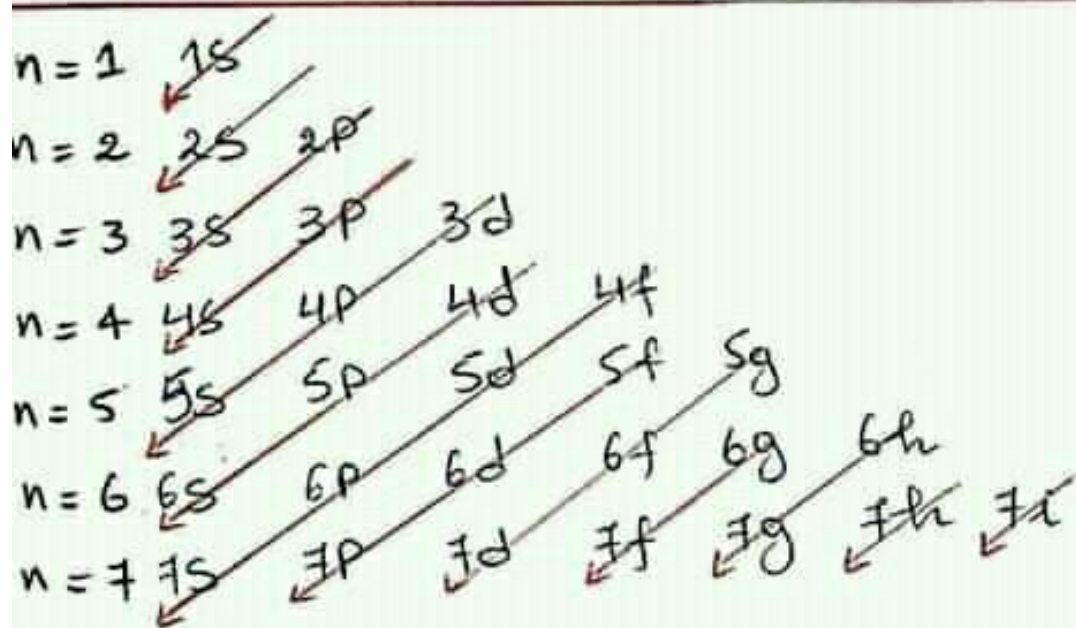 n = 1 1s
n = 2 2s 2p
n = 3 3s 3p 3d
n = 4 4s 4p 4d 4f
n = 5 5s 5p 5d 5f 5g
n = 6 6s 6p 6d 6f 6g 6h
n = 7 7s 7p 7d 7f 7g 7h 7i